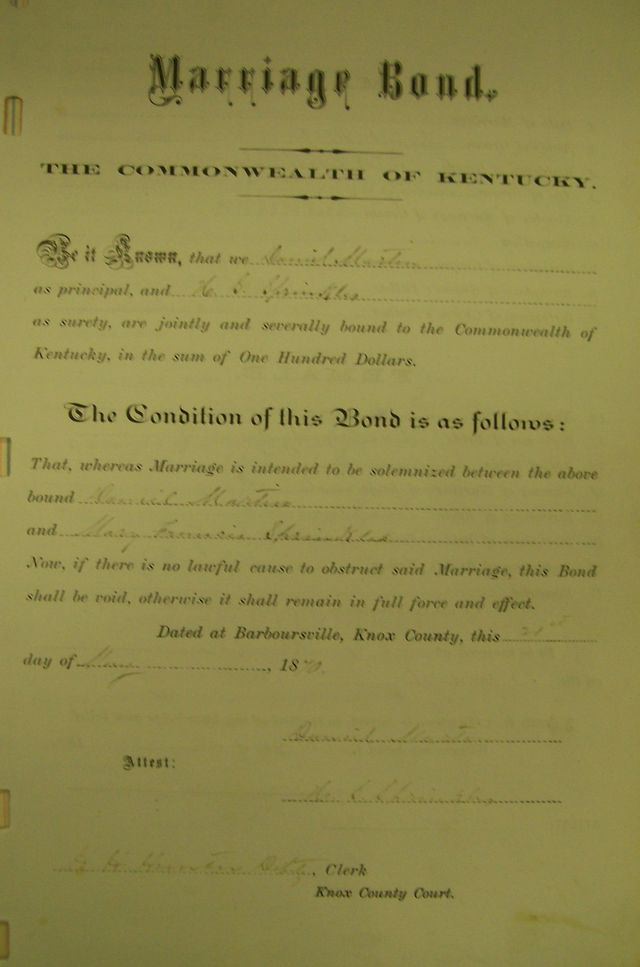 Marriage Bond.
THE COMMONWEALTH OF KENTUCKY.
Be it Known, that we Daniel Martin
as principal, and H. S. Sprinkles
as surety, are jointly and severally bound to the Commonwealth of
Kentucky, in the sum of One Hundred Dollars.
The Condition of this Bond is as follows:
That, whereas Marriage is intended to be solemnized between the above
bound Daniel Martin
and Mary Francis Sprinkles
Now, if there is no lawful cause to obstruct said Marriage, this Bond
shall be void, otherwise it shall remain in full force and effect.
Dated at Barboursville, Knox County, this 21st
day of , 1870.
Daniel Martin
Attest:
Sprinkles
, Clerk
Knox County Court.